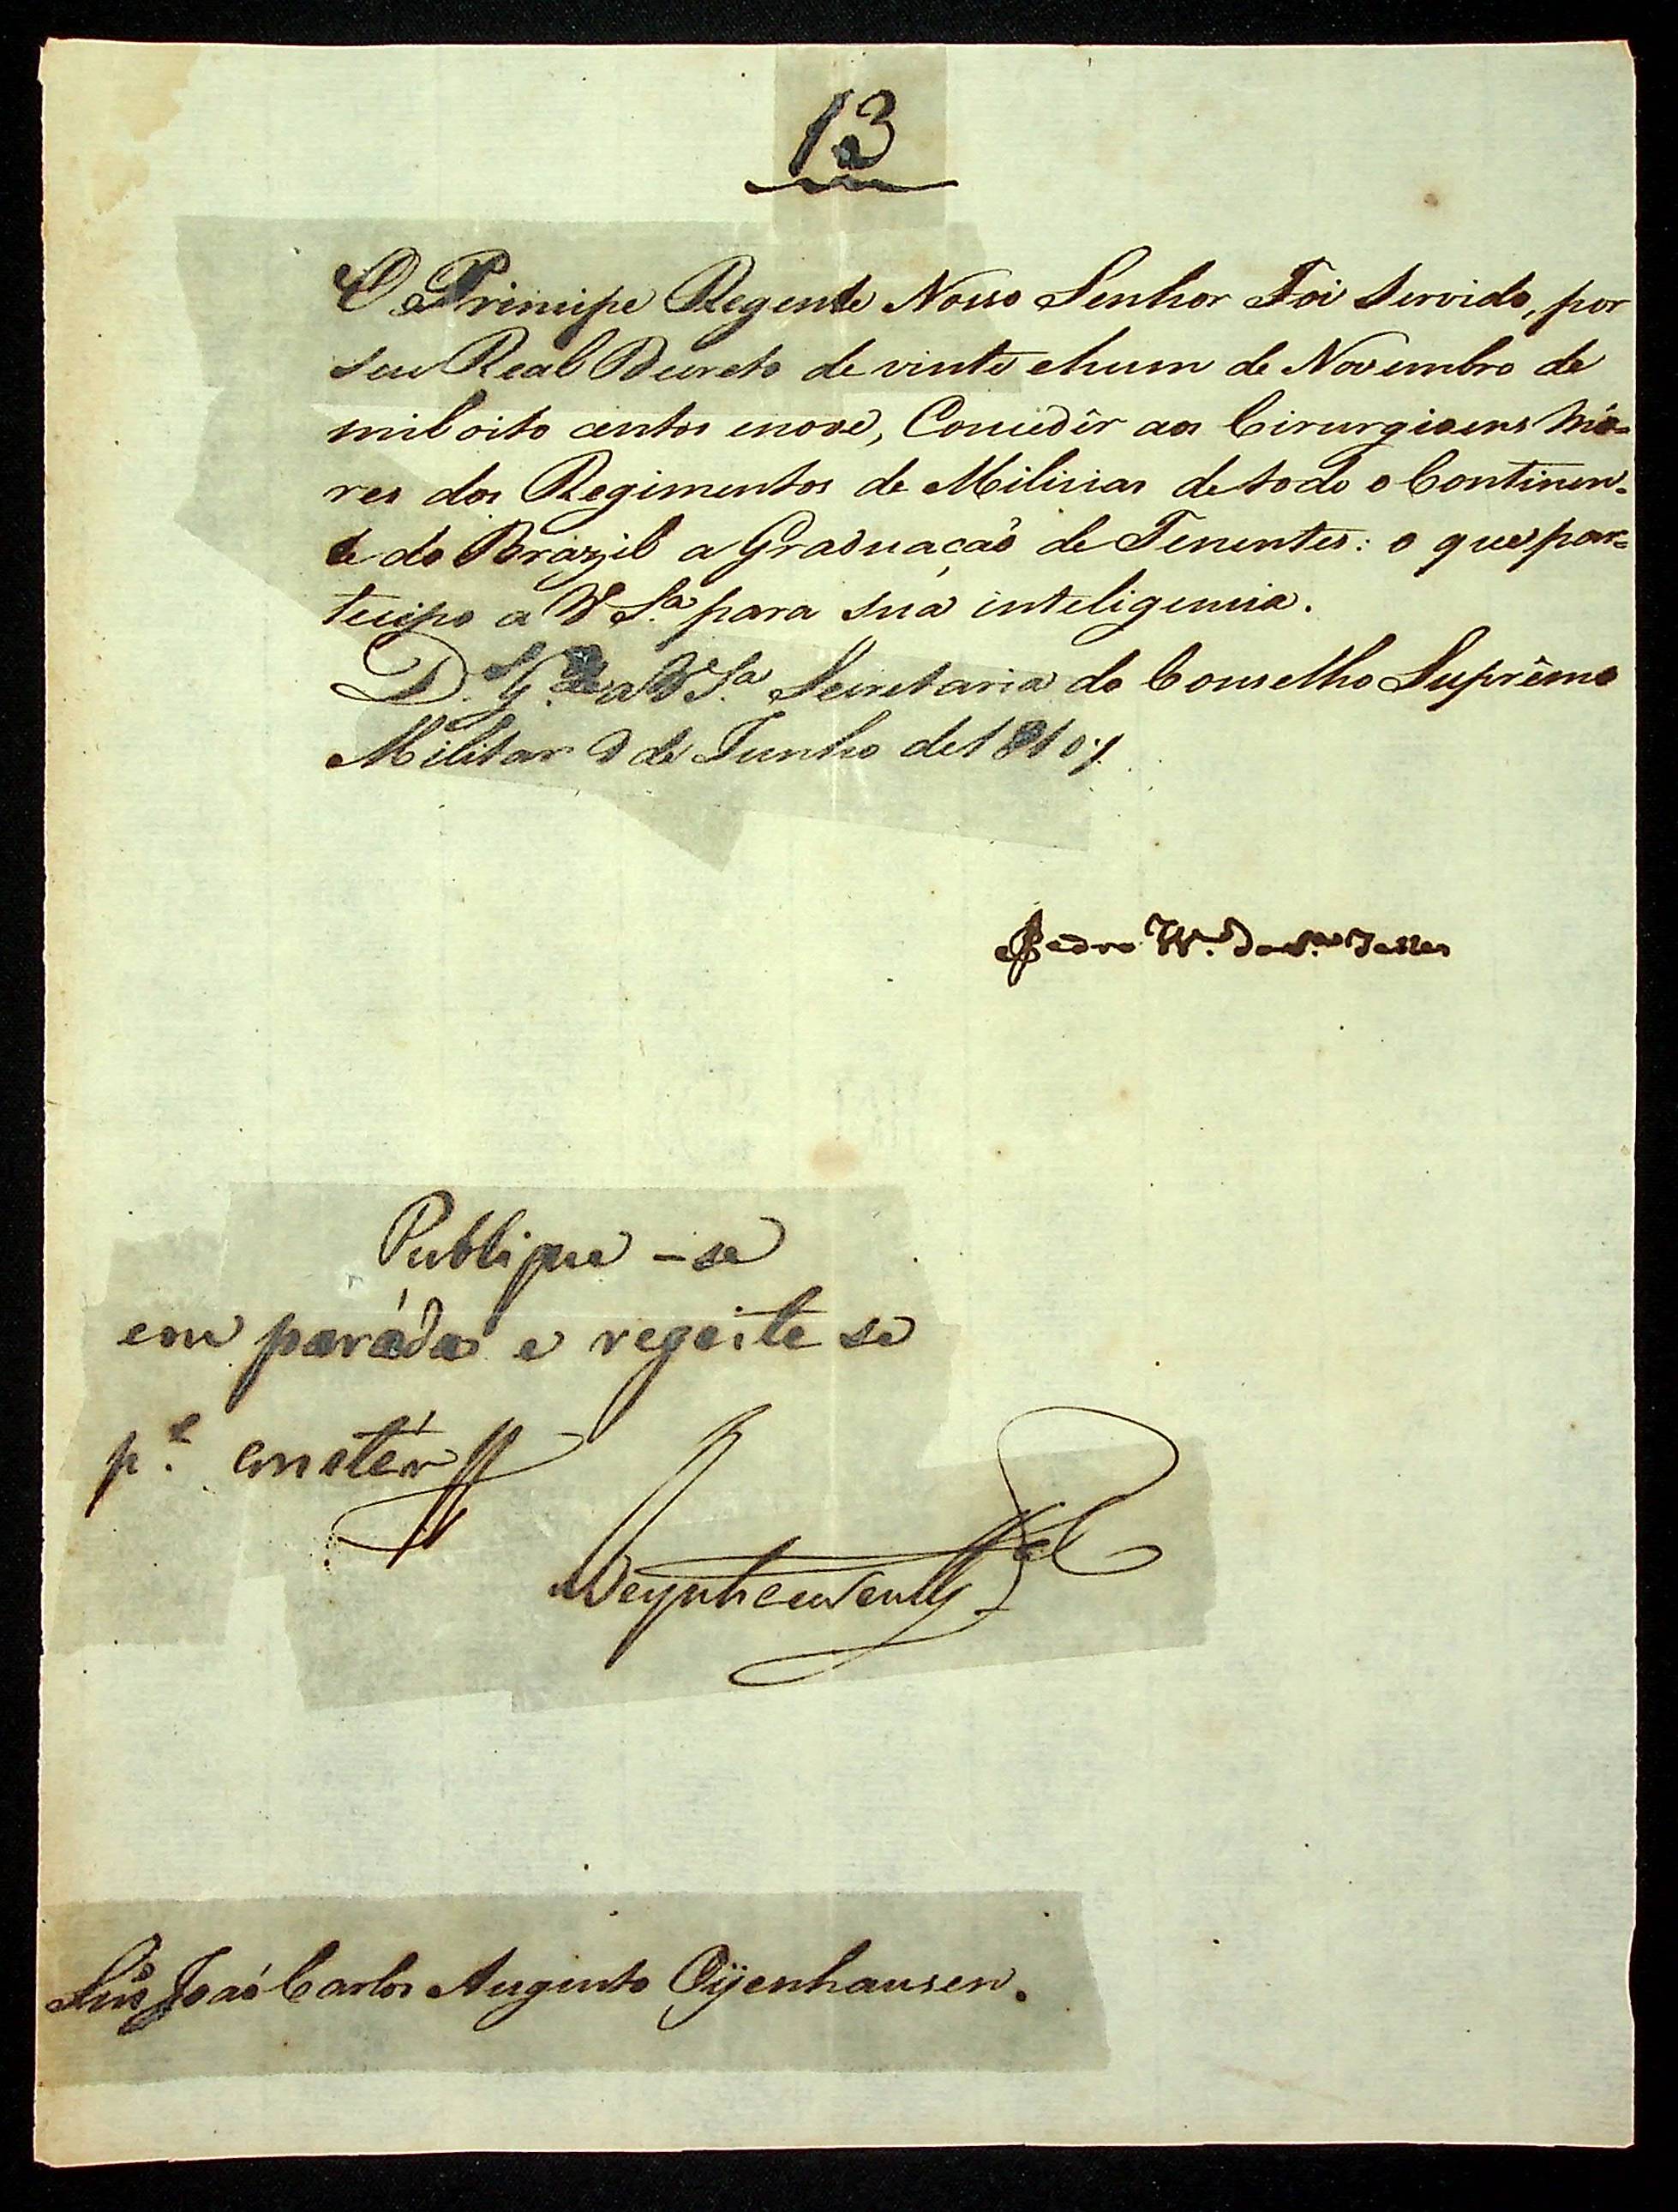 13
O Principe Regente Nosso Senhor Foi servido, por
seu Real Decreto de vinte ehum de Novembro de
mil oito centos enove, Concedêr aos Cirurgioens Mó=
res dos Regimentos de Milicias detodo o Continen=
te do Brazil a Graduaçaõ de Tenentes: o que par=
tecipo a VSª para sua inteligencia.
D.s G.de a VSª Secretaria do Conselho Suprêmo
Militar 9 de Junho de 1810
Pedro
Publique-se
em paráda e regeite se
Snr João Carlos Augusto Oÿenhausen.